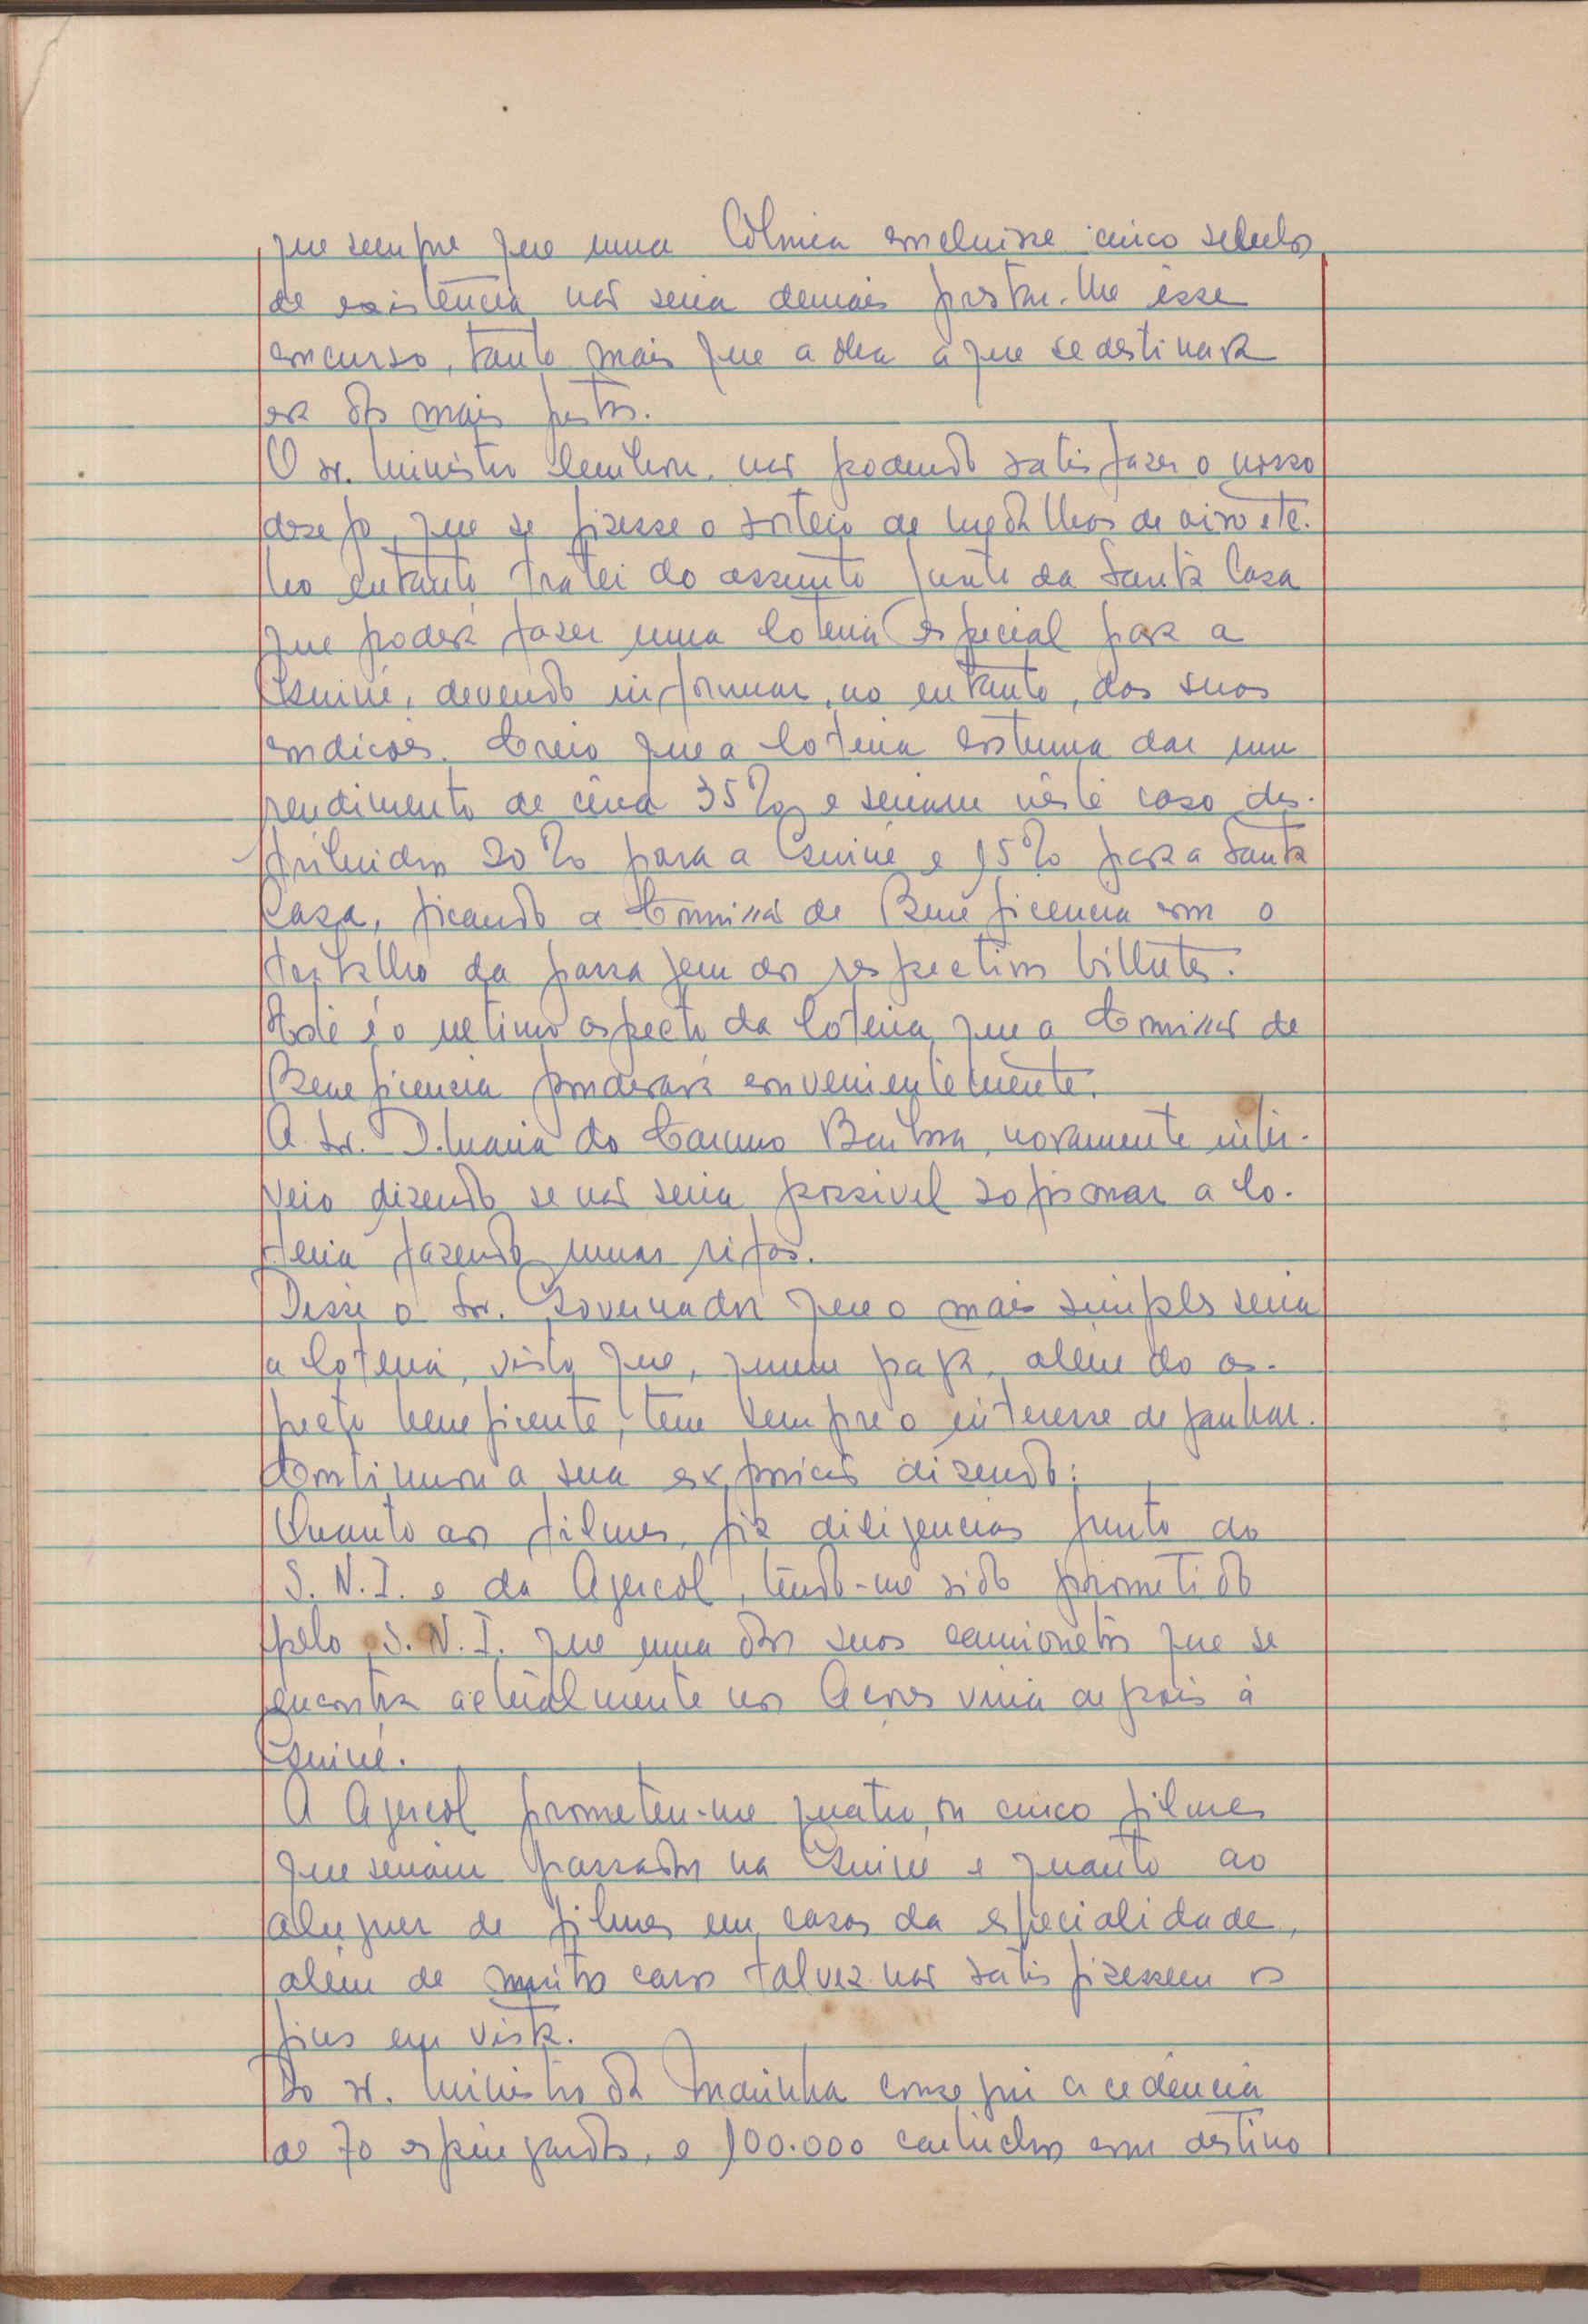 que sempre que uma Colónia concluisse cinco seculos
de existência não seria demais prestar-lhe êsse
concurso, tanto mais que a obra a que se destinava
era das mais justas.
O sr. Ministro lembrou, não podendo satisfazer o nosso
desejo, que se fizesse o sorteio de medalhas de oiro etc.
No entanto tratei do assunto junto da Santa Casa
que poderá fazer uma lotaria especial para a
Guiné, devendo informar, no entanto, das suas
condicões. Creio que a lotaria costuma dar um
rendimento de cêrca 35% e seriam nêste caso dis-
tribuidos 20% para a Guiné e 15% para a Santa
Casa, ficando a Comissão de Beneficencia com o
trabalho da passagem dos respectivos bilhetes.
Este é o ultimo aspecto da lotaria que a Comissão de
Beneficencia ponderará convenientemente.
A Sr. D. Maria do Carmo Barbosa, novamente inter-
veio dizendo se não seria possivel sofismar a lo-
taria fazendo umas rifas.
Disse o Sr. Governador que o mais simples seria
a lotaria, visto que, quem paga, além do as-
pecto beneficente, tem sempre o interesse de ganhar.
Continuou a sua exposição dizendo:
Quanto aos filmes, fiz diligencias junto do
S. N. I. e da Agencol, tendo-me sido prometido
pelo S. N. I. que uma das suas camionetas que se
encontra actualmente nos Açores viria depois á
Guiné.
A Agencol prometeu-me quatro ou cinco filmes
que seriam passados na Guiné e quanto ao
aluguer de filmes em casas da especialidade,
além de muito caros talvez não satisfizessem os
fins em vista.
Do sr. Ministro da Marinha consegui a cedência
de 70 espingardas, e 100.000 cartuchos com destino